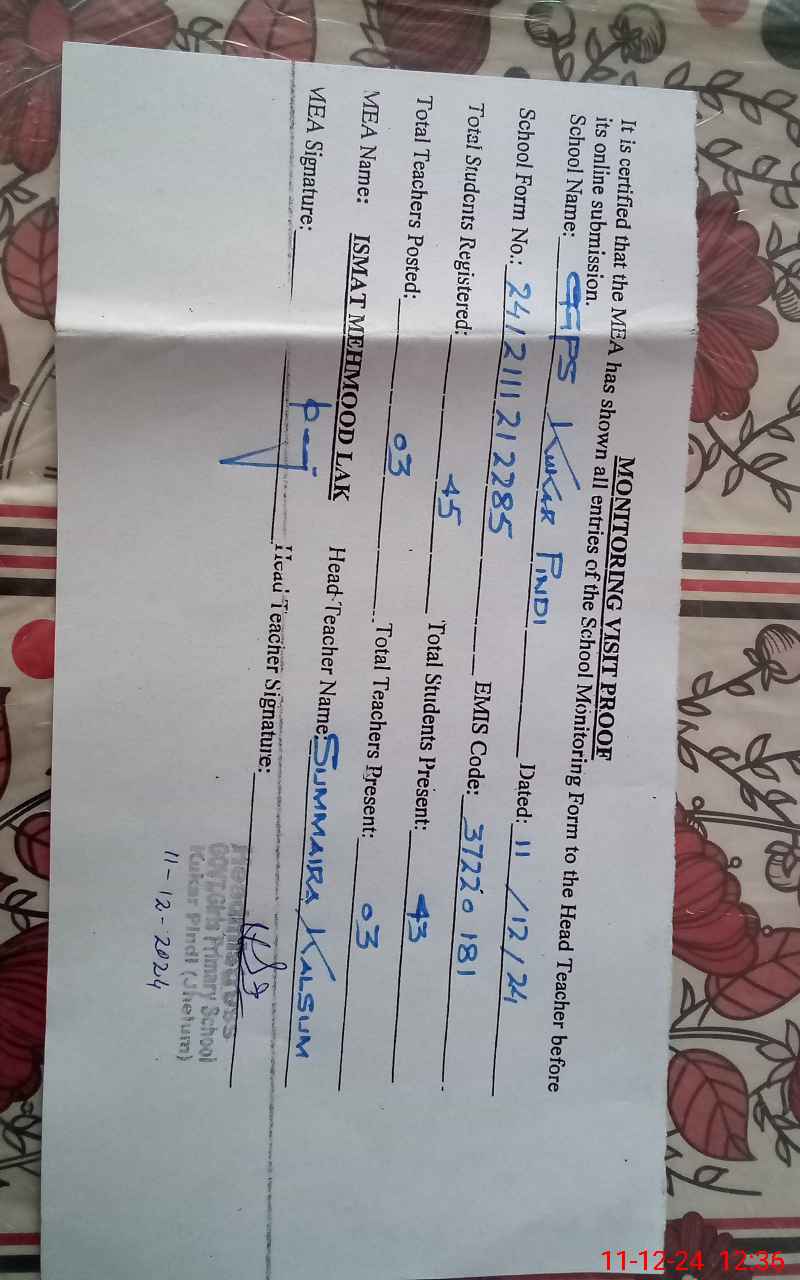 MONITORING VISIT PROOF
It is certified that the MEA has shown all entries of the School Monitoring Form to the Head Teacher before
its online submission.
School Name: GGPS KUKAR PINDI Dated: 11/12/24
School Form No.: 2412111212285 EMIS Code: 37220181
Total Students Registered: 45 Total Students Present: 43
Total Teachers Posted: 03 Total Teachers Present: 03
MEA Name: ISMAT MEHMOOD LAK Head-Teacher Name: SUMMAIRA KALSUM
MEA Signature: Head Teacher Signature:
Headmistress
GOVT.Girls Primary School
Kukar Pindi (Jhelum)
11-12-2024
11-12-24 12:36